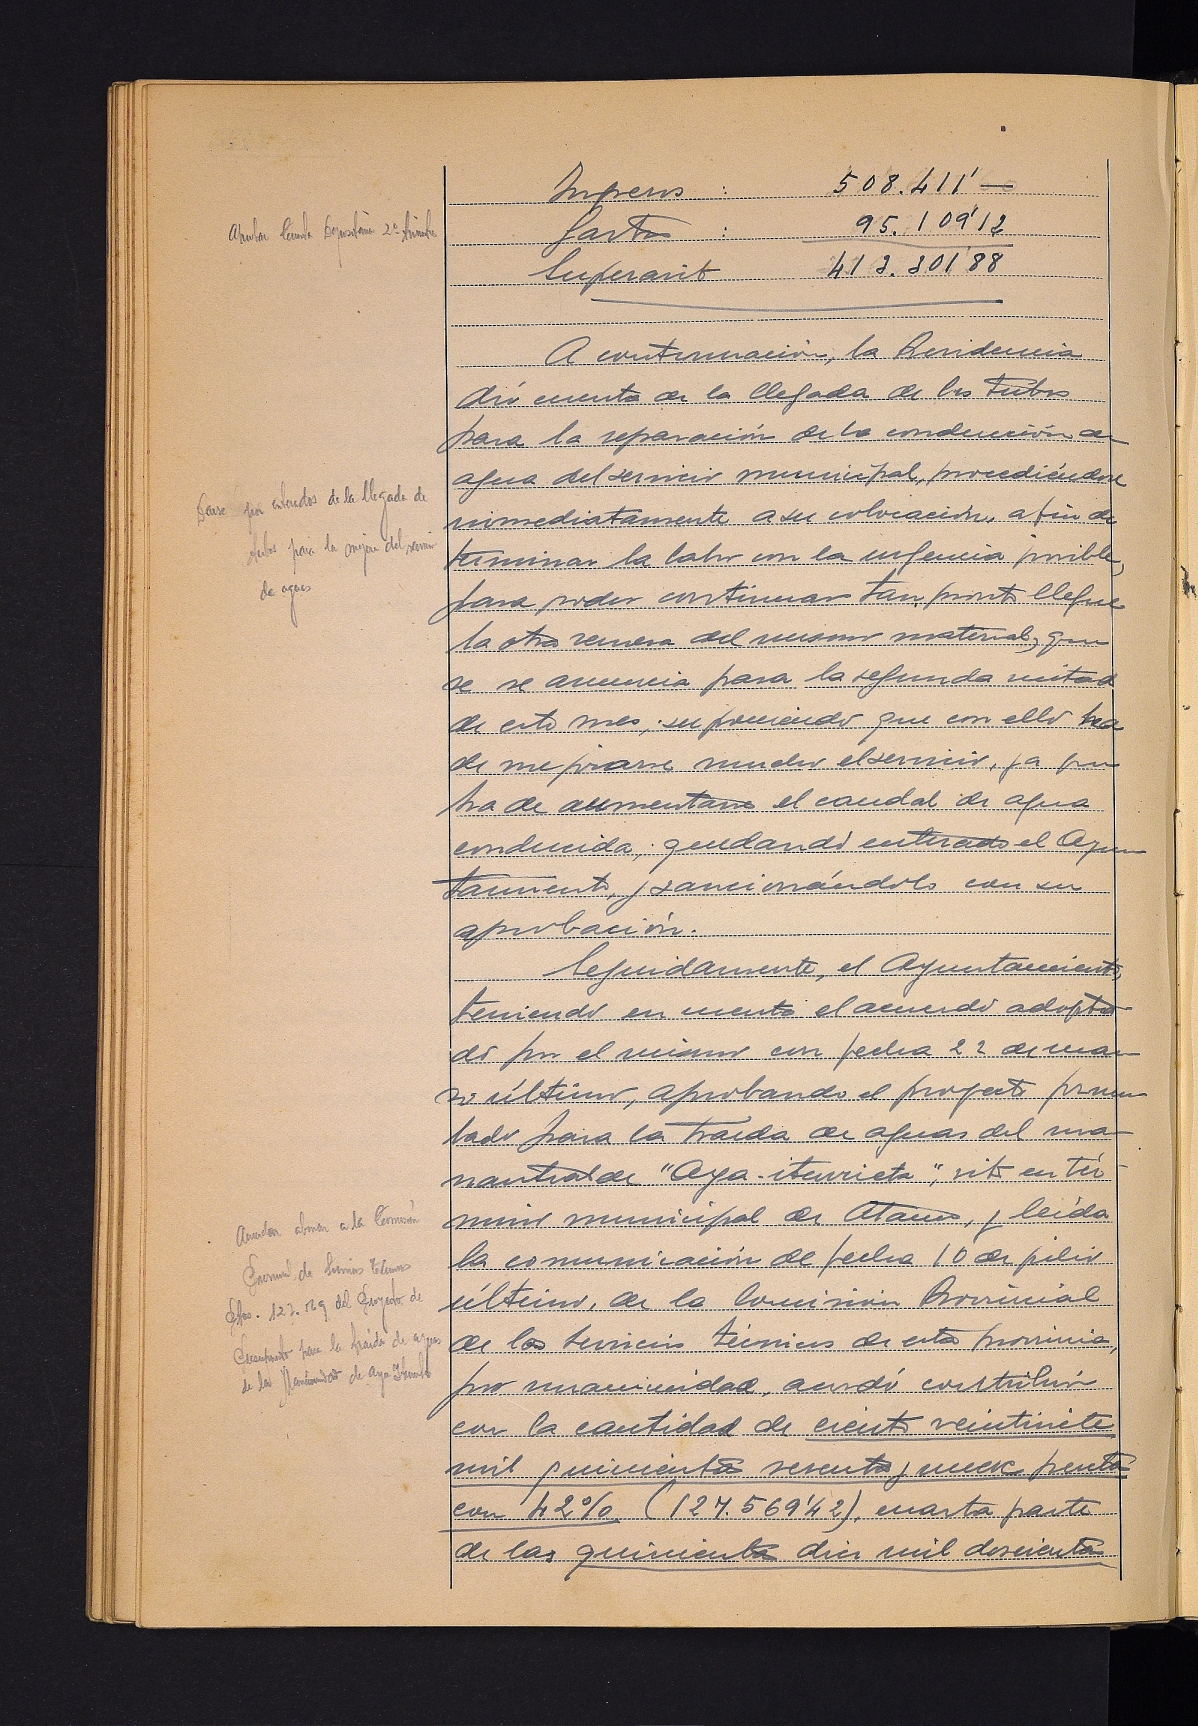 Ingresos : 508.411'—
Gastos : 95.109'12
Superavit 413.301'88
Aprobar Cuenta Depositaria 2º trimestre
A continuación, la Presidencia
dió cuenta de la llegada de los tubos
para la reparación de la conducción de
agua del servicio municipal, procediéndose
inmediatamente a su colocación, a fin de
terminar la labor con la urgencia posible,
para poder continuar tan pronto llegue
la otra remesa del mismo material, que
se se anuncia para la segunda mitad
de este mes, suponiendo que con ello ha
de mejorarse mucho el servicio, ya que
ha de aumentarse el caudal de agua
conducida, quedando enterado el Ayun
tamiento, y sancionándolo con su
aprobación.
Darse por enterados de la llegada de
tubos para la mejora del servicio
de aguas
Seguidamente, el Ayuntamiento,
teniendo en cuenta el acuerdo adopta
do por el mismo con fecha 22 de mar
zo último, aprobando el proyecto presen
tado para la traida de aguas del ma
nantial de "Aya-iturrieta", sito en tér
mino municipal de Ataun, y leída
la comunicación de fecha 10 de julio
último, de la Comisión Provincial
de los Servicios Técnicos de esta provincia,
por unanimidad, acordó contribuir
con la cantidad de ciento veintisiete
mil quinientas sesenta y nueve pesetas
con 42% (127.569'42), cuarta parte
de las quinientas diez mil doscientas
Acuerdan abonar a la Comisión
Provincial de Servicios Técnicos
Ptas. 127.569 del Proyecto de
Presupuesto para la traída de aguas
de la Mancomunidad de Aya Iturrieta